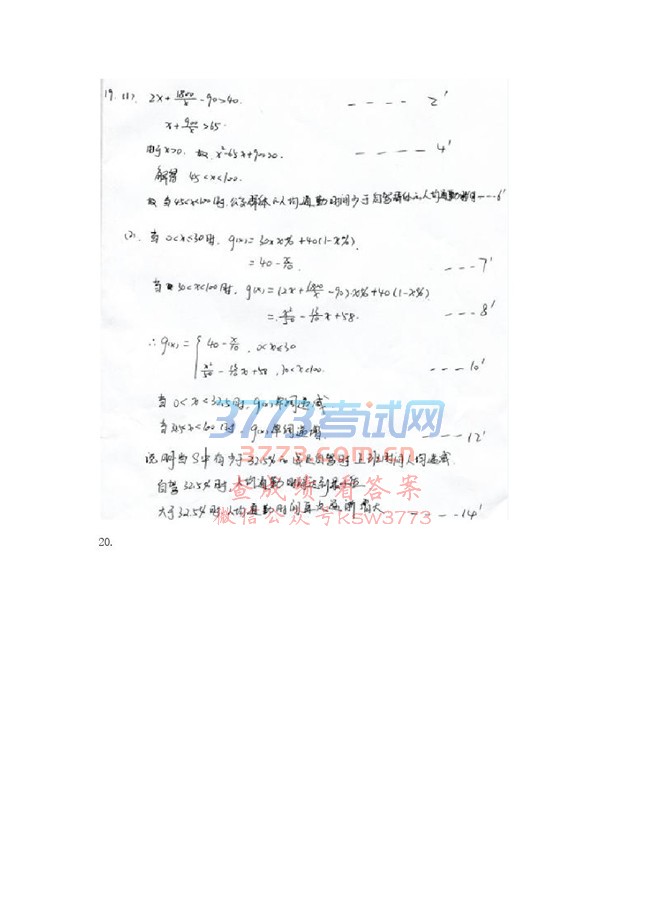 19. (1). 2x + 1800/x - 90 > 40. ---- 2'
x + 900/x > 65.
由于x>0, 故 x²-65x+900>0. ---- 4'
解得 45<x<100.
故 当45<x<100时, 公交群体的人均通勤时间少于自驾群体的人均通勤时间 ---6'
(2). 当 0<x≤30时, g(x) = 30·x% + 40(1-x%)
= 40 - x/10. ---7'
当 30<x<100时, g(x) = (2x + 1800/x - 90)·x% + 40(1-x%)
= x²/50 - 13/10 x + 58. ---8'
∴ g(x) = { 40 - x/10, 0<x≤30
x²/50 - 13/10 x + 58, 30<x<100. ---10'
当 0<x<32.5时, g(x)单调递减.
当32.5<x<100时, g(x)单调递增. ---12'
3773考试网
www.3773.com.cn
说明当S中有少于32.5%的成员自驾时, 上班时间人均递减
自驾32.5%时, 人均通勤时间达到最小值
查成绩看答案
大于32.5%时, 人均通勤时间又逐渐增大 ----14'
微信公众号ksw3773
20.